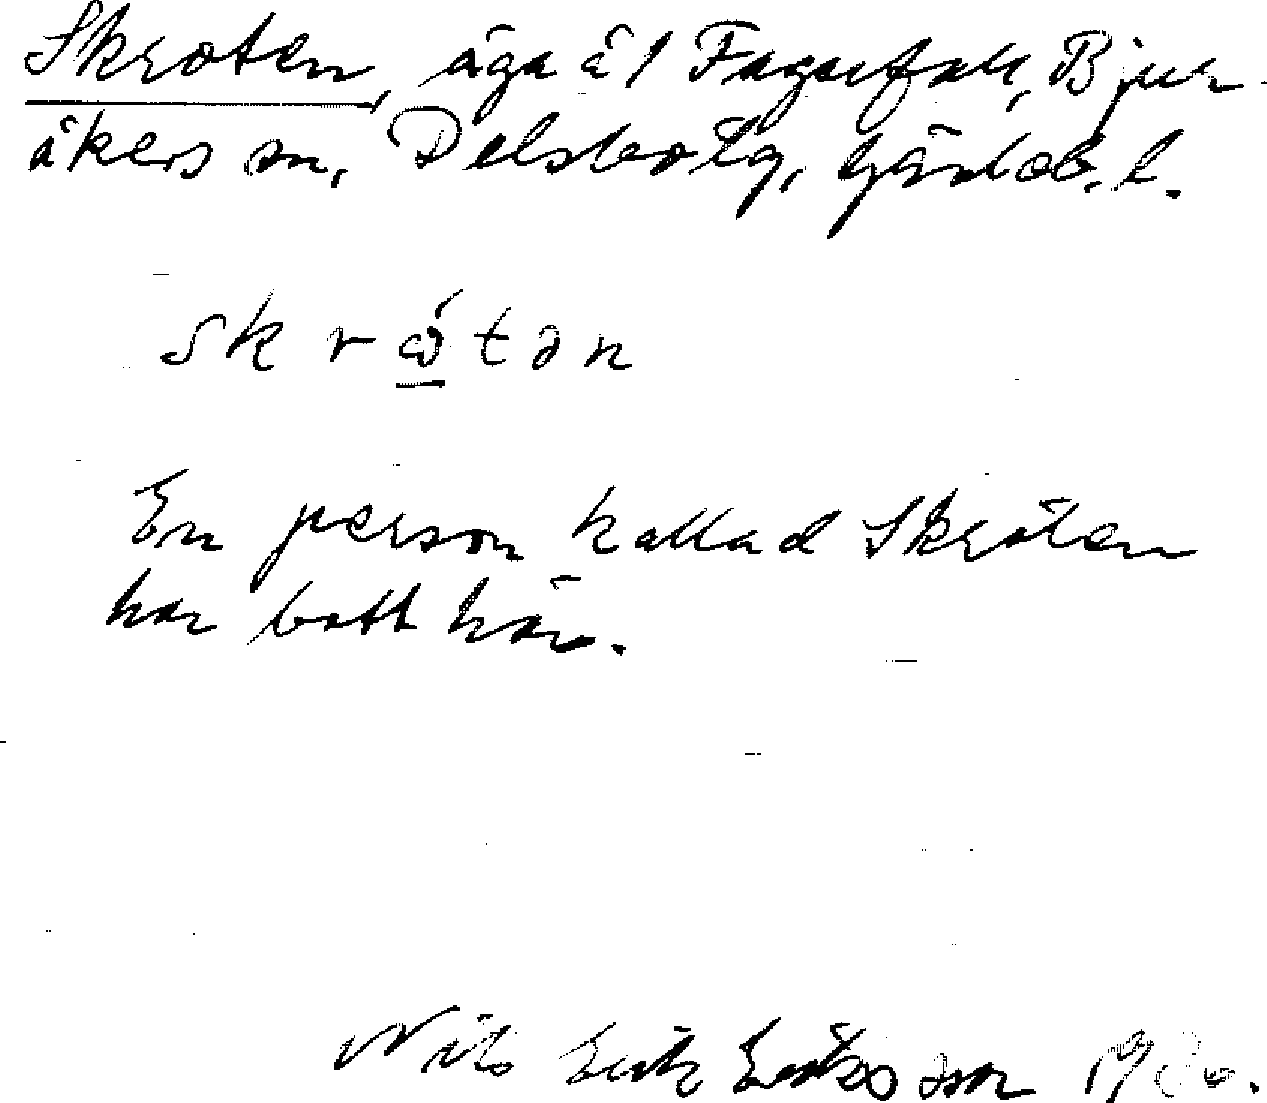 Skroten, äga å 1 Fagerfall, Bjur-
åkers sn, Delsbo tg, Gävleb. l.
skrώtən
En person kallad Skroten
har bott här.
Nils Erik Eriksson